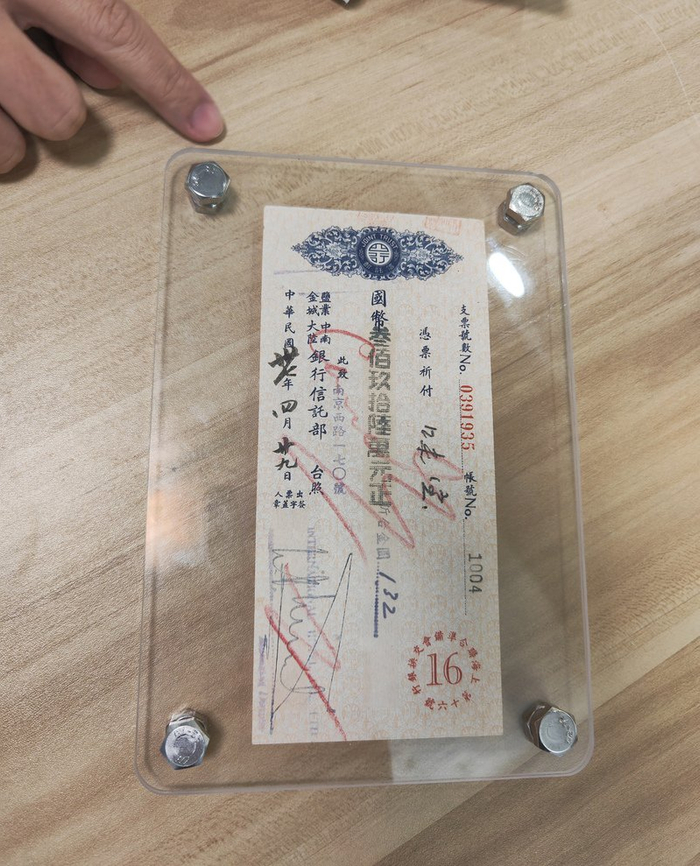 JOINT TRUST
支票號數No. 0391935 帳號No. 1004
憑票祈付
國幣叁佰玖拾陸萬元正
金圓 132
此致 南京西路一七〇號
鹽業 中南
金城 大陸
銀行信託部 台照
中華民國卅七年四月廿九日
出票人
簽字蓋章
16